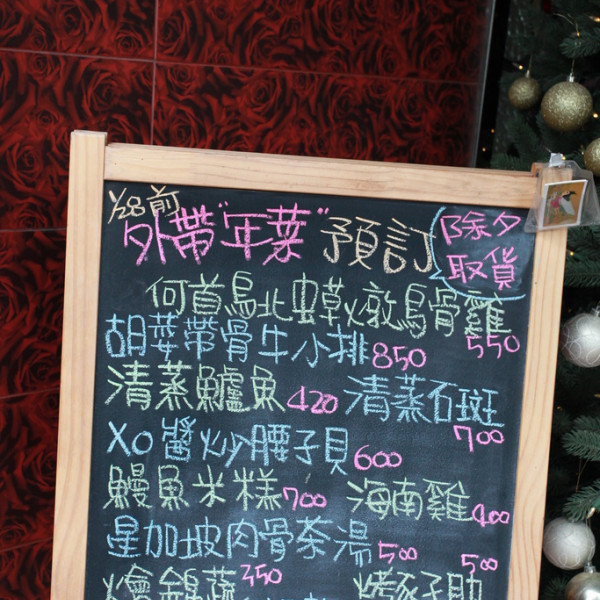 1/28前
外帶"年菜"預訂
除夕
取貨
何首烏北虫草燉烏骨雞 550
胡荽帶骨牛小排 850
清蒸鱸魚 420 清蒸石斑 700
XO醬炒腰子貝 600
鰻魚米糕 700 海南雞 400
星加坡肉骨茶湯 500
燴錦蔬 350 烤豬子助 500